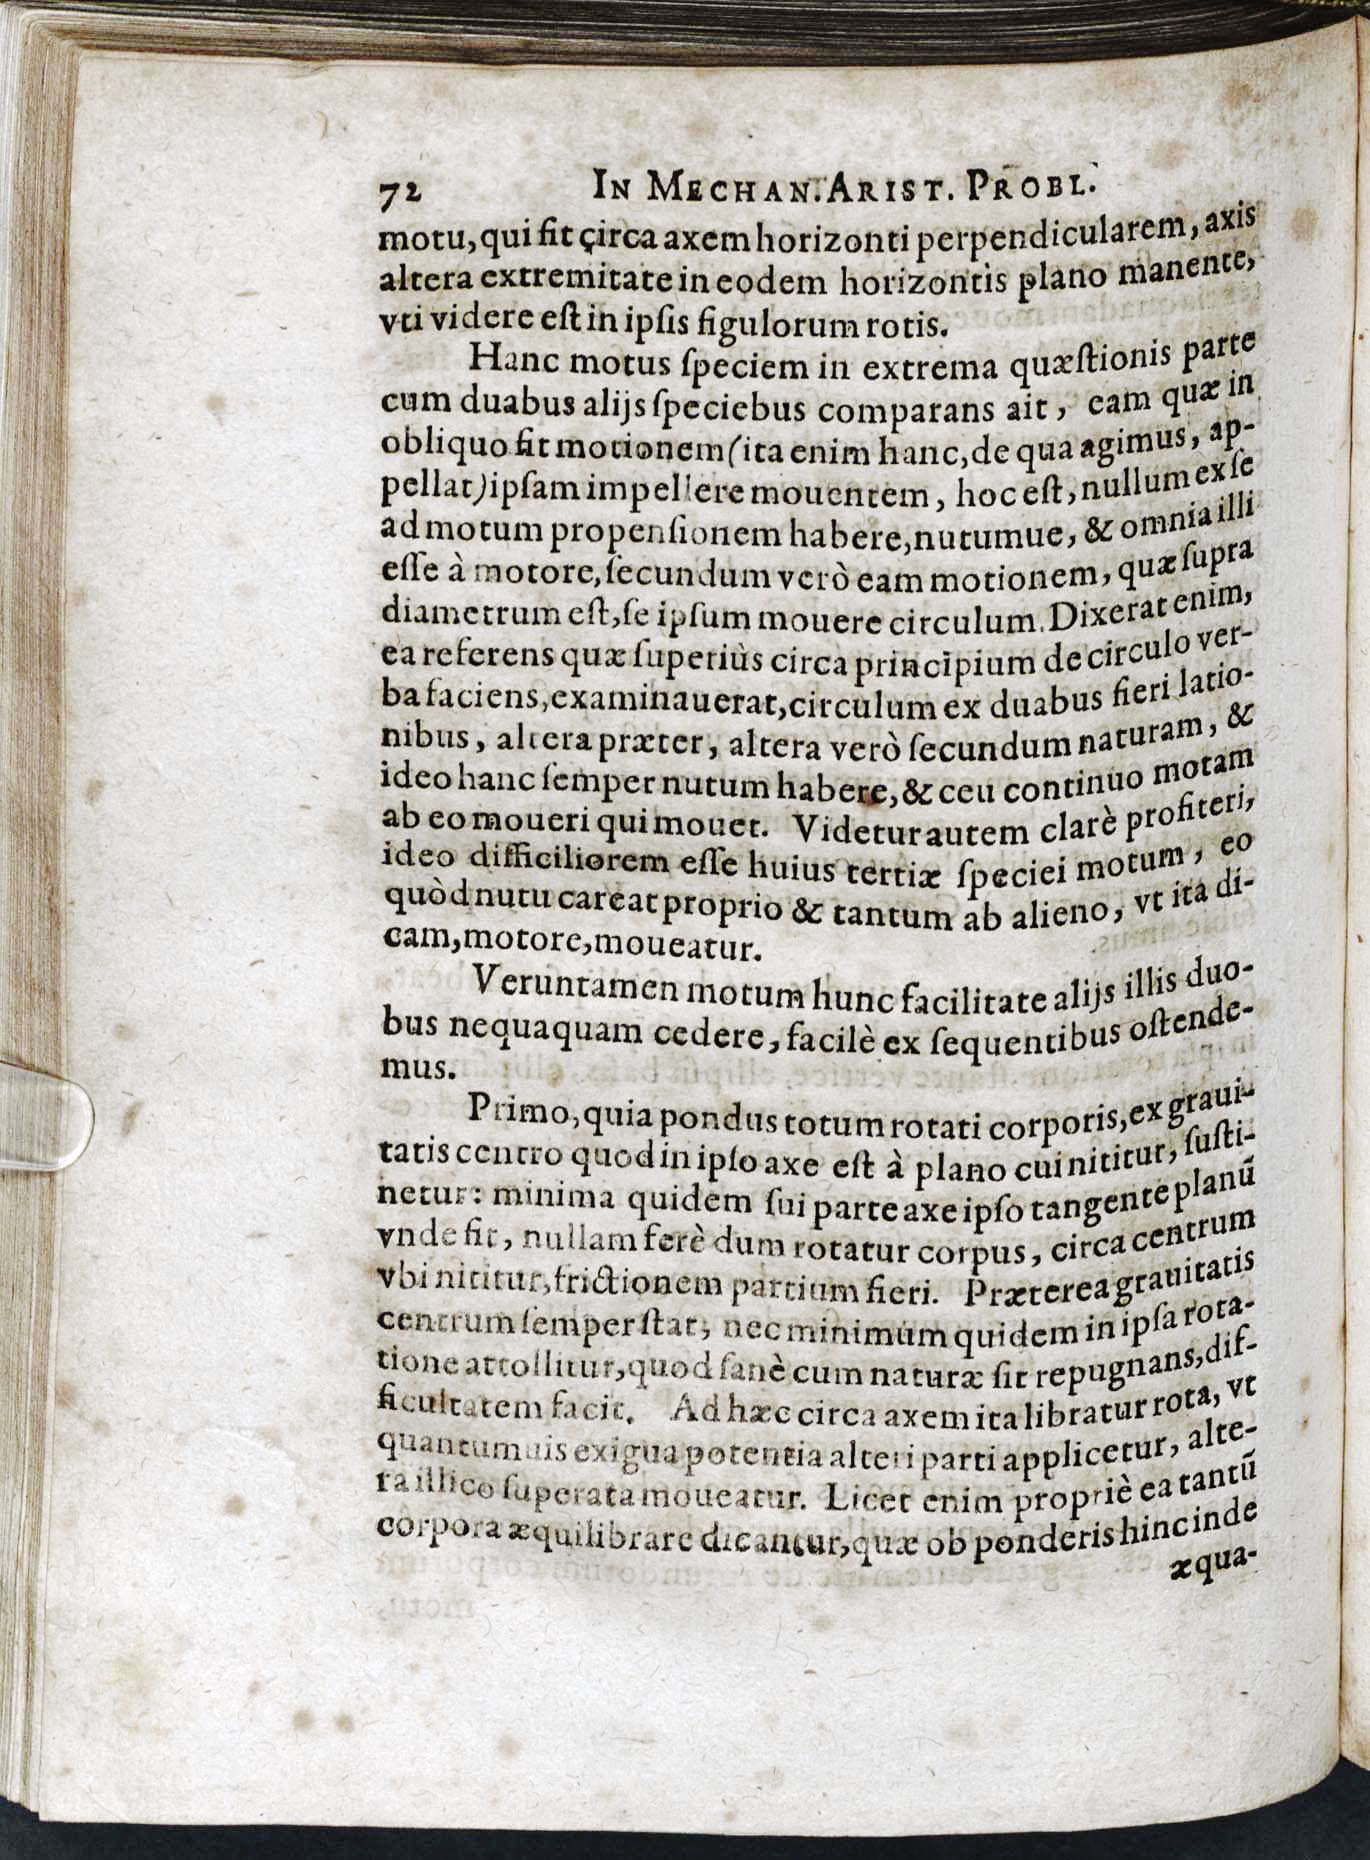 72 IN MECHAN. ARIST. PROBL.
motu, qui fit circa axem horizonti perpendicularem, axis
altera extremitate in eodem horizontis plano manente,
vti videre eſt in ipſis figulorum rotis.
Hanc motus ſpeciem in extrema quæſtionis parte
cum duabus alijs ſpeciebus comparans ait, eam quæ in
obliquo fit motionem (ita enim hanc, de qua agimus, ap-
pellat) ipſam impellere mouentem, hoc eſt, nullum ex ſe
ad motum propenſionem habere, nutumue, & omnia illi
eſſe à motore, ſecundum verò eam motionem, quæ ſupra
diametrum eſt, ſe ipſum mouere circulum. Dixerat enim,
ea referens quæ ſuperiùs circa principium de circulo ver-
ba faciens, examinauerat, circulum ex duabus fieri latio-
nibus, altera præter, altera verò ſecundum naturam, &
ideo hanc ſemper nutum habere, & ceu continuo motam
ab eo moueri qui mouet. Videtur autem clarè profiteri,
ideo difficiliorem eſſe huius tertiæ ſpeciei motum, eo
quòd nutu careat proprio & tantum ab alieno, vt ita di-
cam, motore, moueatur.
Veruntamen motum hunc facilitate alijs illis duo-
bus nequaquam cedere, facilè ex ſequentibus oſtende-
mus.
Primo, quia pondus totum rotati corporis, ex graui-
tatis centro quod in ipſo axe eſt à plano cui nititur, ſuſti-
netur: minima quidem ſui parte axe ipſo tangente planũ
vnde fit, nullam ferè dum rotatur corpus, circa centrum
vbi nititur, frictionem partium fieri. Præterea grauitatis
centrum ſemper ſtat, nec minimum quidem in ipſa rota-
tione attollitur, quod ſanè cum naturæ ſit repugnans, dif-
ficultatem facit. Ad hæc circa axem ita libratur rota, vt
quantumuis exigua potentia alteri parti applicetur, alte-
ra illico ſuperata moueatur. Licet enim propriè ea tantũ
corpora æquilibrare dicantur, quæ ob ponderis hinc inde
æqua-